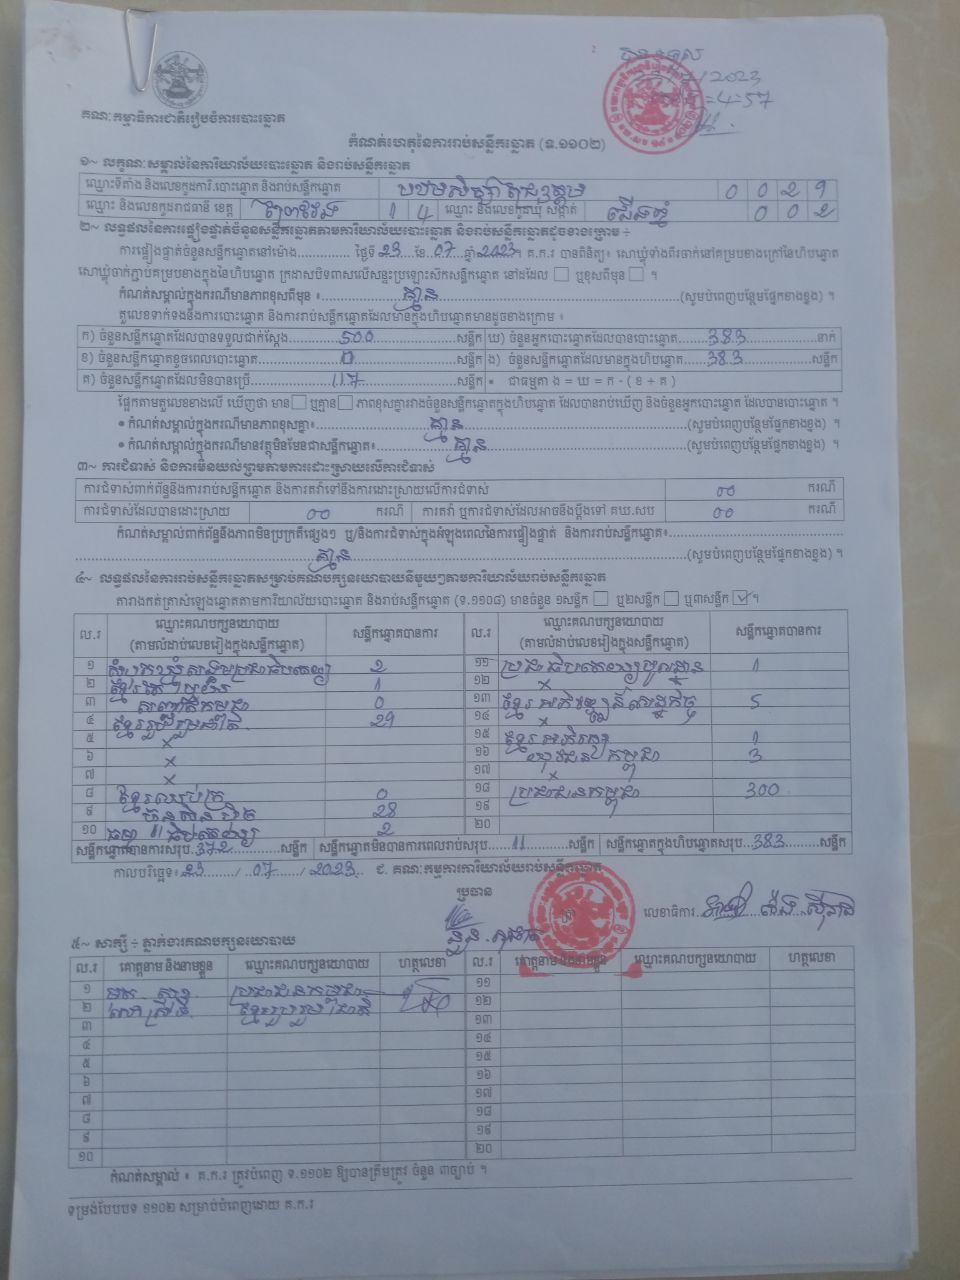 2023
4:57
គណៈកម្មាធិការជាតិរៀបចំការបោះឆ្នោត
កំណត់ហេតុនៃការរាប់សន្លឹកឆ្នោត (ទ.១១០២)
១~ លក្ខណៈសម្គាល់នៃការិយាល័យបោះឆ្នោត និងរាប់សន្លឹកឆ្នោត
ឈ្មោះទីតាំង និងលេខកូដការិ.បោះឆ្នោត និងរាប់សន្លឹកឆ្នោត 0 0 2 9
ឈ្មោះ និងលេខកូដរាជធានី ខេត្ត ព្រៃវែង 1 4 ឈ្មោះ និងលេខកូដឃុំ សង្កាត់ 0 0 2
២~ លទ្ធផលនៃការផ្ទៀងផ្ទាត់ចំនួនសន្លឹកឆ្នោតតាមការិយាល័យបោះឆ្នោត និងរាប់សន្លឹកឆ្នោតដូចខាងក្រោម ÷
ការផ្ទៀងផ្ទាត់ចំនួនសន្លឹកឆ្នោតនៅម៉ោង............. ថ្ងៃទី 23 ខែ 07 ឆ្នាំ 2023។ គ.ក.រ បានពិនិត្យ៖ សោឃ្លុំទាំងពីរចាក់នៅគម្របខាងក្រៅនៃហិបឆ្នោត
សោឃ្លុំចាក់ភ្ជាប់គម្របខាងក្នុងនៃហិបឆ្នោត ក្រដាសបិទពាសលើសន្ទះប្រឡោះស៊កសន្លឹកឆ្នោត នៅដដែល ឬខុសពីមុន ។
កំណត់សម្គាល់ក្នុងករណីមានភាពខុសពីមុន ៖ គ្មាន (សូមបំពេញបន្ថែមផ្នែកខាងខ្នង) ។
តួលេខទាក់ទងនឹងការបោះឆ្នោត និងការរាប់សន្លឹកឆ្នោតដែលមានក្នុងហិបឆ្នោតមានដូចខាងក្រោម ៖
ក) ចំនួនសន្លឹកឆ្នោតដែលបានទទួលជាក់ស្តែង 500 សន្លឹក ឃ) ចំនួនអ្នកបោះឆ្នោតដែលបានបោះឆ្នោត 383 នាក់
ខ) ចំនួនសន្លឹកឆ្នោតខូចពេលបោះឆ្នោត 0 សន្លឹក ង) ចំនួនសន្លឹកឆ្នោតដែលមានក្នុងហិបឆ្នោត 383 សន្លឹក
គ) ចំនួនសន្លឹកឆ្នោតដែលមិនបានប្រើ 117 សន្លឹក • ជាធម្មតា ង = ឃ = ក - ( ខ + គ )
ផ្អែកតាមតួលេខខាងលើ ឃើញថា មាន ឬគ្មាន ភាពខុសគ្នារវាងចំនួនសន្លឹកឆ្នោតក្នុងហិបឆ្នោត ដែលបានរាប់ឃើញ និងចំនួនអ្នកបោះឆ្នោត ដែលបានបោះឆ្នោត ។
• កំណត់សម្គាល់ក្នុងករណីមានភាពខុសគ្នា៖ គ្មាន (សូមបំពេញបន្ថែមផ្នែកខាងខ្នង) ។
• កំណត់សម្គាល់ក្នុងករណីមានវត្ថុមិនមែនជាសន្លឹកឆ្នោត៖ គ្មាន (សូមបំពេញបន្ថែមផ្នែកខាងខ្នង) ។
៣~ ការជំទាស់ និងការមិនយល់ព្រមតាមការដោះស្រាយលើការជំទាស់
ការជំទាស់ពាក់ព័ន្ធនឹងការរាប់សន្លឹកឆ្នោត និងការតវ៉ាទៅនឹងការដោះស្រាយលើការជំទាស់ 00 ករណី
ការជំទាស់ដែលបានដោះស្រាយ 00 ករណី ការតវ៉ា ឬការជំទាស់ដែលអាចនឹងប្តឹងទៅ គឃ.សប 00 ករណី
កំណត់សម្គាល់ពាក់ព័ន្ធនឹងភាពមិនប្រក្រតីផ្សេងៗ ឬ/និងការជំទាស់ក្នុងអំឡុងពេលនៃការផ្ទៀងផ្ទាត់ និងការរាប់សន្លឹកឆ្នោត៖
គ្មាន (សូមបំពេញបន្ថែមផ្នែកខាងខ្នង) ។
៤~ លទ្ធផលនៃការរាប់សន្លឹកឆ្នោតសម្រាប់គណបក្សនយោបាយនីមួយៗតាមការិយាល័យរាប់សន្លឹកឆ្នោត
តារាងកត់ត្រាសំឡេងឆ្នោតតាមការិយាល័យបោះឆ្នោត និងរាប់សន្លឹកឆ្នោត (ទ.១១០៨) មានចំនួន ១សន្លឹក ឬ២សន្លឹក ឬ៣សន្លឹក ។
ល.រ ឈ្មោះគណបក្សនយោបាយ (តាមលំដាប់លេខរៀងក្នុងសន្លឹកឆ្នោត) សន្លឹកឆ្នោតបានការ ល.រ ឈ្មោះគណបក្សនយោបាយ (តាមលំដាប់លេខរៀងក្នុងសន្លឹកឆ្នោត) សន្លឹកឆ្នោតបានការ
១ 2 ១១ 1
២ 1 ១២ x
៣ 0 ១៣ 5
៤ 29 ១៤ x
៥ x ១៥ 1
៦ x ១៦ 3
៧ x ១៧ x
៨ 0 ១៨ ប្រជាជនកម្ពុជា 300
៩ 28 ១៩
១០ 2 ២០
សន្លឹកឆ្នោតបានការសរុប 372 សន្លឹក សន្លឹកឆ្នោតមិនបានការពេលរាប់សរុប 11 សន្លឹក សន្លឹកឆ្នោតក្នុងហិបឆ្នោតសរុប 383 សន្លឹក
កាលបរិច្ឆេទ៖ 23 / 07 / 2023 ជ. គណៈកម្មការការិយាល័យរាប់សន្លឹកឆ្នោត
ប្រធាន
លេខាធិការ
៥~ សាក្សី ÷ ភ្នាក់ងារគណបក្សនយោបាយ
ល.រ គោត្តនាម និងនាមខ្លួន ឈ្មោះគណបក្សនយោបាយ ហត្ថលេខា ល.រ គោត្តនាម និងនាមខ្លួន ឈ្មោះគណបក្សនយោបាយ ហត្ថលេខា
១ ប្រជាជនកម្ពុជា ១១
២ ១២
៣ ១៣
៤ ១៤
៥ ១៥
៦ ១៦
៧ ១៧
៨ ១៨
៩ ១៩
១០ ២០
កំណត់សម្គាល់ ៖ គ.ក.រ ត្រូវបំពេញ ទ.១១០២ ឱ្យបានត្រឹមត្រូវ ចំនួន ៣ច្បាប់ ។
ទម្រង់បែបបទ ១១០២ សម្រាប់បំពេញដោយ គ.ក.រ